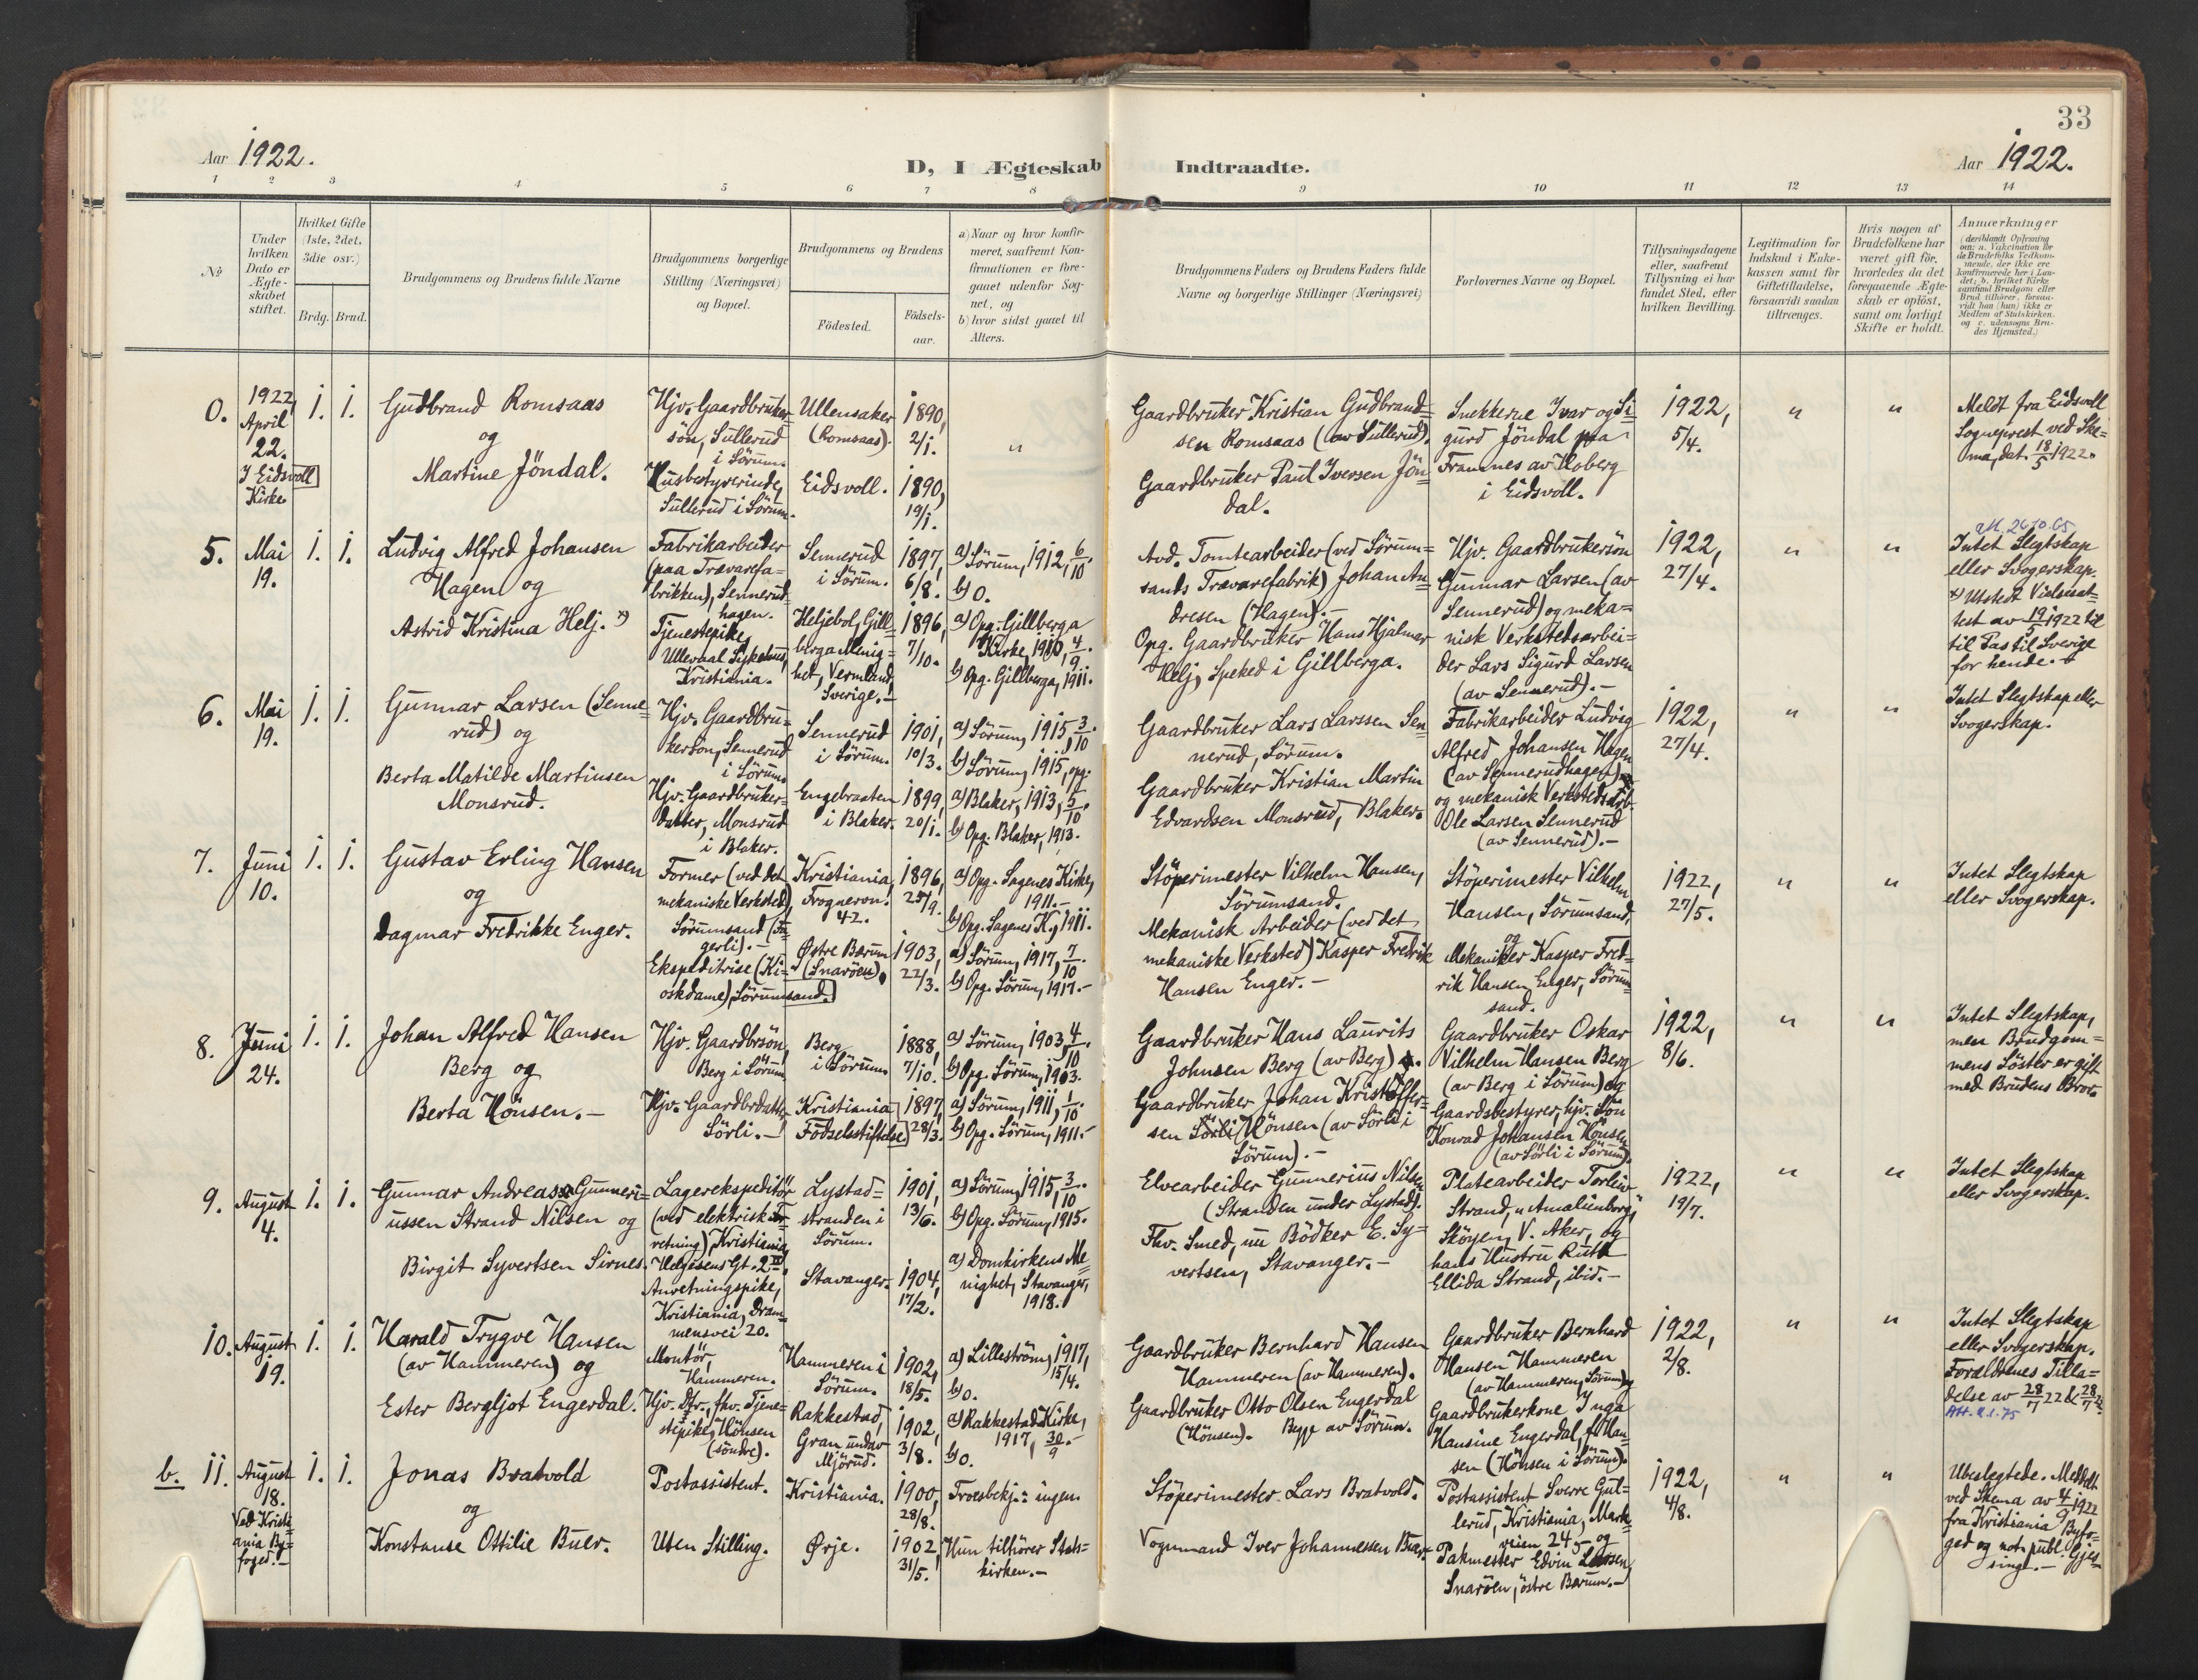 33
Aar 1922.
D, I Ægteskab Indtraadte.
Aar 1922.
1 2 3 4 5 6 7 8 9 10 11 12 13 14
No
Under
hvilken
Dato er
Ægte-
skabet
stiftet.
Hvilket Gifte
(1ste, 2det,
3die osv.)
Brdg. Brud.
Brudgommens og Brudens fulde Navne
Brudgommens borgerlige
Stilling (Næringsvei)
og Bopæl.
Brudgommens og Brudens
Födested.
Födsels-
aar.
a) Naar og hvor konfir-
meret, saafremt Kon-
firmationen er fore-
gaaet udenfor Sog-
net, og
b) hvor sidst gaaet til
Alters.
Brudgommens Faders og Brudens Faders fulde
Navne og borgerlige Stillinger (Næringsvei)
Forlovernes Navne og Bopæl.
Tillysningsdagene
eller, saafremt
Tillysning ei har
fundet Sted, efter
hvilken Bevilling.
Legitimation for
Indskud i Enke-
kassen samt for
Giftetilladelse,
forsaavidt saadan
tiltrænges.
Hvis nogen af
Brudefolkene har
været gift för,
hvorledes da det
foregaaende Ægte-
skab er oplöst,
samt om lovligt
Skifte er holdt.
Anmærkninger
(deriblandt Oplysning
om: a. Vakcination for
de Brudefolks Vedkom-
mende, der ikke ere
konfirmerede her i Lan-
det; b. hvilket Kirke
samfund Brudgom eller
Brud tilhörer, forsaa-
vidt han (hun) ikke er
Medlem af Statskirken.
og c. udensogns Bru-
des Hjemsted.)
0.
1922,
April
22.
I Eidsvoll
Kirke
1. 1.
Gudbrand Romsaas
og
Martine Jöndal.
Hjv. Gaardbruker=
sön, Sullerud
i Sörum.
Husbestyrerinde,
Sullerud i Sörum.
Ullensaker
(Romsaas).
Eidsvoll.
1890,
2/1.
1890,
19/1.
"
Gaardbruker Kristian Gudbrand=
sen Romsaas (av Sullerud).
Gaardbruker Paul Iversen Jön=
dal.
Snekkerne Ivar og Si
gurd Jöndal paa
Framnes av Hoberg
i Eidsvoll.
1922,
5/4.
" "
Meldt fra Eidsvoll
Sogneprest ved Ske=
ma, dat. 18/5 1922.
5.
Mai
19.
1. 1.
Ludvig Alfred Johansen
Hagen og
Astrid Kristina Helj. x)
Fabrikarbeider
(paa Trævarefa=
brikken), Sennerud=
hagen.
Tjenestepike,
Ullevaal Sykehus,
Kristiania.
Sennerud
i Sörum.
Heljebol, Gill=
berga Menig=
het, Vermland,
Sverige.-
1897,
6/8.
1896,
7/10.
a) Sörum, 1912, 6/10.
b) 0.
a) Opg. Gillberga
Kirke, 1910, 4/9.
b) Opg. Gillberga, 1911.
Avd. Tomtearbeider (ved Sörum=
sands Trævarefabrik) Johan An=
dresen (Hagen).-
Opg. Gaardbruker Hans Hjalmar
Helj, Speked i Gillberga.
Hjv. Gaardbrukersön
Gunnar Larsen (av
Sennerud) og meka=
nisk Verkstedsarbei=
der Lars Sigurd Larsen
(av Sennerud).-
1922,
27/4.
" "
Intet Slegtskap
eller Svogerskap.
x) Utstedt Vielsesat=
test av 19/5 1922 til
til Pas til Sverige
for hende.
6.
Mai
19.
1. 1.
Gunnar Larsen (Senne=
rud) og
Berta Matilde Martinsen
Monsrud.
Hjv. Gaardbru=
kersön, Sennerud
i Sörum.
Hjv. Gaardbruker=
datter, Monsrud
i Blaker.
Sennerud
i Sörum.
Engebraaten
i Blaker.
1901,
10/3.
1899,
20/1.
a) Sörum, 1915, 3/10.
b) Sörum, 1915, opg.
a) Blaker, 1913, 5/10.
b) Opg. Blaker, 1913.
Gaardbruker Lars Larssen Sen
nerud, Sörum.
Gaardbruker Kristian Martin
Edvardsen Monsrud, Blaker.
Fabrikarbeider Ludvig
Alfred Johansen Hagen
(av Sennerudhagen)
og mekanisk Verkstedsarb.
Ole Larsen Sennerud
(av Sennerud).-
1922,
27/4.
" "
Intet Slegtskap eller
Svogerskap.
7.
Juni
10.
1. 1.
Gustav Erling Hansen
og
Dagmar Fredrikke Enger.
Former (ved det
mekaniske Verksted),
Sörumsand (Fa=
gerli).-
Ekspeditrise (Ki=
oskdame), Sörumsand.
Kristiania,
Frogneron.
42.
Östre Bærum
(Snaröen).
1896,
25/9.
1903,
22/3.
a) Opg. Sagenes Kirke,
1911.-
b) Opg. Sagenes K., 1911.
a) Sörum, 1917, 7/10.
b) Opg. Sörum, 1917.-
Stöperimester Vilhelm Hansen,
Sörumsand.
Mekanisk Arbeider (ved det
mekaniske Verksted) Kasper Fredrik
Hansen Enger.-
Stöperimester Vilhelm
Hansen, Sörumsand,
og
Mekaniker Kasper Fred=
rik Hansen Enger, Sörum=
sand.
1922,
27/5.
" "
Intet Slegtskap
eller Svogerskap.
8.
Juni
24.
1. 1.
Johan Alfred Hansen
Berg og
Berta Hönsen.-
Hjv. Gaardbrsön,
Berg i Sörum
Hjv. Gaardbrdatter
Sörli.-
Berg
i Sörum
Kristiania
Födselsstiftelse
1888,
7/10.
1897,
28/3.
a) Sörum, 1903, 4/10.
b) Opg. Sörum, 1903.
a) Sörum, 1911, 1/10.
b) Opg. Sörum, 1911.-
Gaardbruker Hans Laurits
Johnsen Berg (av Berg).
Gaardbruker Johan Kristoffer=
sen Sörli Hönsen (av Sörli i
Sörum).-
Gaardbruker Oskar
Vilhelm Hansen Berg
(av Berg i Sörum) og
Gaardsbestyrer, hjv. Sön
Konrad Johansen Hönsen
(av Sörli i Sörum).
1922,
8/6.
" "
Intet Slegtskap,
men Brudgom=
mens Söster er gift
med Brudens Bror.
9.
August
4.
1. 1.
Gunnar Andreas Gunneri=
ussen Strand Nilsen og
Birgit Syvertsen Sirnes.
Lagerekspeditör
(ved elektrisk For=
retning), Kristiania,
Helgesens Gt. 2 II,
Anretningspike,
Kristiania, Dram=
mensvei 20.
Lystad=
stranden i
Sörum.
Stavanger.
1901,
13/6.
1904,
17/2.
a) Sörum, 1915, 3/10
b) Opg. Sörum, 1915.
a) Domkirkens Me=
nighet, Stavanger,
1918.
Elvearbeider Gunnerius Nilsen
(Stranden under Lystad).
Fhv. Smed, nu Bödker E. Sy=
vertsen, Stavanger.-
Platearbeider Torleiv
Strand, "Amalienborg",
Sköyen, V. Aker, og
hans Hustru Ruth
Ellida Strand, ibid.-
1922,
19/7.
" "
Intet Slegtskap
eller Svogerskap.
10.
August
19.
1. 1.
Harald Trygve Hansen
(av Hammeren) og
Ester Bergljot Engerdal.
Montör,
Hammeren.
Hjv. Dtr., fhv. Tjene=
stepike, Hönsen
(söndre).
Hammeren i
Sörum.
Rakkestad,
Gran under
Mjörud.
1902,
18/5.
1902,
3/8.
a) Lilleström, 1917,
15/4.
b) 0.
a) Rakkestad Kirke,
1917, 30/9.-
b) 0.
Gaardbruker Bernhard Hansen
Hammeren (av Hammeren).
Gaardbruker Otto Olsen Engerdal
(Hönsen). Begge av Sörum.
Gaardbruker Bernhard
Hansen Hammeren
(av Hammeren, Sörum) og
Gaardbrukerkone Inga
Hansine Engerdal, f. Han=
sen (Hönsen i Sörum).
1922,
2/8.
" "
Intet Slegtskap
eller Svogerskap.
Forældrenes Tilla=
delse av 28/7 22 & 28/7 22
Att. 2.1.75
b. 11.
August
18.
Ved Kristi=
ania By=
foged.-
1. 1.
Jonas Bratvold
og
Konstanse Ottilie Buer.
Postassistent.
Uten Stilling.
Kristiania.
Ørje.
1900,
28/8.
1902,
31/5.
Troesbekj.: ingen.
Hun tilhörer Stats=
kirken.-
Stöperimester Lars Bratvold.
Vognmand Iver Johannessen Buer.
Postassistent Sverre Gul=
lerud, Kristiania, Mark=
veien 24, og
Pakmester Edvin Larsen,
Snaröen, östre Bærum.-
1922,
4/8.
" "
Ubeslegtede. Meddelt
ved Skema av 4/9 1922
fra Kristiania Byfo=
ged og not. publ. Gjes=
sing.-